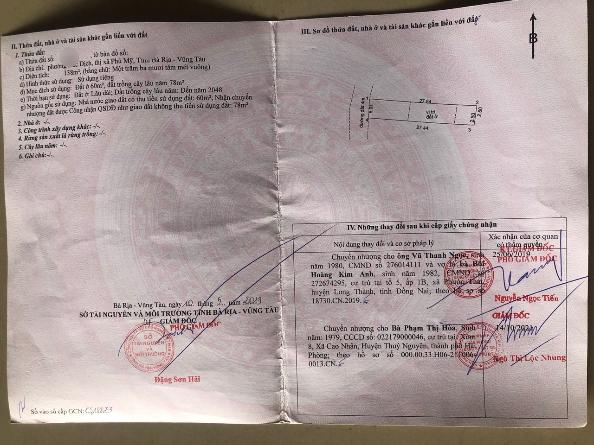 II. Thửa đất, nhà ở và tài sản khác gắn liền với đất
1. Thửa đất:
a) Thửa đất số: , tờ bản đồ số:
b) Địa chỉ: phường Dịch, thị xã Phú Mỹ, Tỉnh Bà Rịa - Vũng Tàu
c) Diện tích: 138m², (bằng chữ: Một trăm ba mươi tám mét vuông)
d) Hình thức sử dụng: Sử dụng riêng
đ) Mục đích sử dụng: Đất ở 60m², đất trồng cây lâu năm 78m²
e) Thời hạn sử dụng: Đất ở: Lâu dài; Đất trồng cây lâu năm: Đến năm 2048
g) Nguồn gốc sử dụng: Nhà nước giao đất có thu tiền sử dụng đất: 60m², Nhận chuyển
nhượng đất được Công nhận QSDĐ như giao đất không thu tiền sử dụng đất: 78m²
2. Nhà ở: -/-
3. Công trình xây dựng khác: -/-
4. Rừng sản xuất là rừng trồng: -/-
5. Cây lâu năm: -/-
6. Ghi chú: -/-
Bà Rịa - Vũng Tàu, ngày
SỞ TÀI NGUYÊN VÀ MÔI TRƯỜNG TỈNH BÀ RỊA - VŨNG TÀU
GIÁM ĐỐC
PHÓ GIÁM ĐỐC
Đặng Sơn Hải
Số vào sổ cấp GCN:
III. Sơ đồ thửa đất, nhà ở và tài sản khác gắn liền với đất
B
27.64
27.64
IV. Những thay đổi sau khi cấp giấy chứng nhận
Nội dung thay đổi và cơ sở pháp lý
Xác nhận của cơ quan
có thẩm quyền
25/06/2019
KT.GIÁM ĐỐC
PHÓ GIÁM ĐỐC
Chuyển nhượng cho ông Vũ Thanh Ngọc, sinh
năm 1980, CMND số 276014111 và vợ là bà Bùi
Hoàng Kim Anh, sinh năm 1982, CMND số
272674295, cư trú tại tổ 5, ấp 1B, xã Phước Thái,
huyện Long Thành, tỉnh Đồng Nai; theo hồ sơ số
18730.CN.2019.
Nguyễn Ngọc Tiên
Chuyển nhượng cho Bà Phạm Thị Hòa, Sinh
năm: 1979, CCCD số: 022179000046, cư trú tại Xóm
8, Xã Cao Nhân, Huyện Thuỷ Nguyên, thành phố Hải
Phòng; theo hồ sơ số
0013.CN
GIÁM ĐỐC
Ngô Thị Lộc Nhung